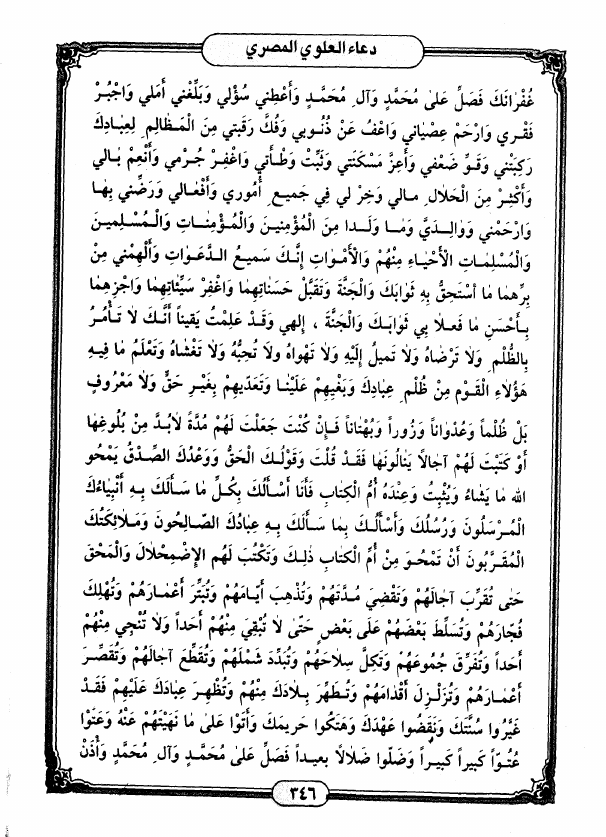 دعاء العلوي المصري
غُفْرَانَكَ فَصَلِّ عَلىٰ مُحَمَّدٍ وَآلِ مُحَمَّدٍ وَأَعْطِني سُؤْلي وَبَلِّغْني أَمَلي وَاجْبُرْ
فَقْري وَارْحَمْ عِصْيَاني وَاعْفُ عَنْ ذُنُوبي وَفُكَّ رَقَبَتي مِنَ الْمَظَالِمِ لِعِبَادِكَ
رَكِبَتْني وَقَوِّ ضَعْفي وَأَعِزَّ مَسْكَنَتي وَثَبِّتْ وَطْأَتي وَاغْفِرْ جُرْمي وَأَنْعِمْ بَالي
وَأَكْثِرْ مِنَ الْحَلَالِ مالي وَخِرْ لي في جَميعِ أُمُوري وَأَفْعَالي وَرَضِّني بِهَا
وَارْحَمْني وَوَالِدَيَّ وَمَا وَلَدا مِنَ الْمُؤْمِنينَ وَالْمُؤْمِنَاتِ وَالْمُسْلِمينَ
وَالْمُسْلِمَاتِ الْأَحْيَاءِ مِنْهُمْ وَالْأَمْوَاتِ إِنَّكَ سَميعُ الدَّعَوَاتِ وَأَلْهِمْني مِنْ
بِرِّهِما مَا أَسْتَحِقُّ بِهِ ثَوَابَكَ وَالْجَنَّةَ وَتَقَبَّلْ حَسَنَاتِهِما وَاغْفِرْ سَيِّئَاتِهِما وَاجْزِهِما
بِأَحْسَنِ مَا فَعَلا بي ثَوَابَكَ وَالْجَنَّةَ ، إِلهي وَقَدْ عَلِمْتُ يَقيناً أَنَّكَ لَا تَأْمُرُ
بِالظُّلْمِ وَلَا تَرْضَاهُ وَلَا تَميلُ إِلَيْهِ وَلَا تَهْوَاهُ وَلَا تُحِبُّهُ وَلَا تَغْشَاهُ وَتَعْلَمُ مَا فيهِ
هَؤُلَاءِ الْقَوْمِ مِنْ ظُلْمِ عِبَادِكَ وَبَغْيِهِمْ عَلَيْنا وَتَعَدّيهِمْ بِغَيْرِ حَقٍّ وَلَا مَعْرُوفٍ
بَلْ ظُلْماً وَعُدْوَاناً وَزُوراً وَبُهْتَاناً فَإِنْ كُنْتَ جَعَلْتَ لَهُمْ مُدَّةً لَابُدَّ مِنْ بُلُوغِهَا
أَوْ كَتَبْتَ لَهُمْ آجالاً يَنَالُونَهَا فَقَدْ قُلْتَ وَقَوْلُكَ الْحَقُّ وَوَعْدُكَ الصِّدْقُ يَمْحُو
الله مَا يَشَاءُ وَيُثْبِتُ وَعِنْدَهُ أُمُّ الْكِتَابِ فَأَنَا أَسْأَلُكَ بِكُلِّ مَا سَأَلَكَ بِهِ أَنْبِيَاءُكَ
الْمُرْسَلُونَ وَرُسُلُكَ وَأَسْأَلُكَ بِمَا سَأَلَكَ بِهِ عِبَادُكَ الصَّالِحُونَ وَمَلَائِكَتُكَ
الْمُقَرَّبُونَ أَنْ تَمْحُوَ مِنْ أُمِّ الْكِتَابِ ذٰلِكَ وَتَكْتُبَ لَهُم الْإِضْمِحْلَالَ وَالْمَحْقَ
حَتّى تُقَرِّبَ آجالَهُمْ وَتَقْضِيَ مُدَّتَهُمْ وَتُذْهِبَ أَيَّامَهُمْ وَتُبَتِّرَ أَعْمَارَهُمْ وَتُهْلِكَ
فُجَّارَهُمْ وَتُسَلِّطَ بَعْضَهُمْ عَلى بَعْضٍ حَتّى لَا تُبْقِيَ مِنْهُمْ أَحَداً وَلَا تُنْجِي مِنْهُمْ
أَحَداً وَتُفَرِّقَ جُمُوعَهُمْ وَتَكِلَّ سِلَاحَهُمْ وَتُبَدِّدَ شَمْلَهُمْ وَتُقَطِّعَ آجالَهُمْ وَتُقَصِّرَ
أَعْمَارَهُمْ وَتُزَلْزِلَ أَقْدَامَهُمْ وَتُطَهِّرَ بِلَادَكَ مِنْهُمْ وَتُظْهِرَ عِبَادَكَ عَلَيْهِمْ فَقَدْ
غَيَّرُوا سُنَّتَكَ وَنَقَضُوا عَهْدَكَ وَهَتَكُوا حَريمَكَ وَأَتَوْا عَلىٰ مَا نَهَيْتَهُمْ عَنْهُ وَعَتَوْا
عُتُوّاً كَبيراً كَبيراً وَضَلُّوا ضَلَالاً بعيداً فَصَلِّ عَلىٰ مُحَمَّدٍ وَآلِ مُحَمَّدٍ وَأْذَنْ
٣٤٦